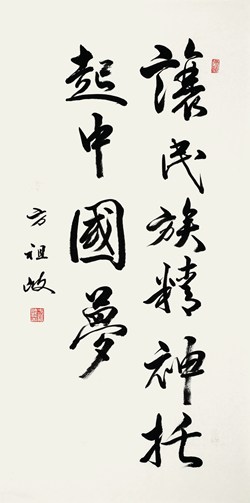 讓民族精神托
起中國夢
方祖岐